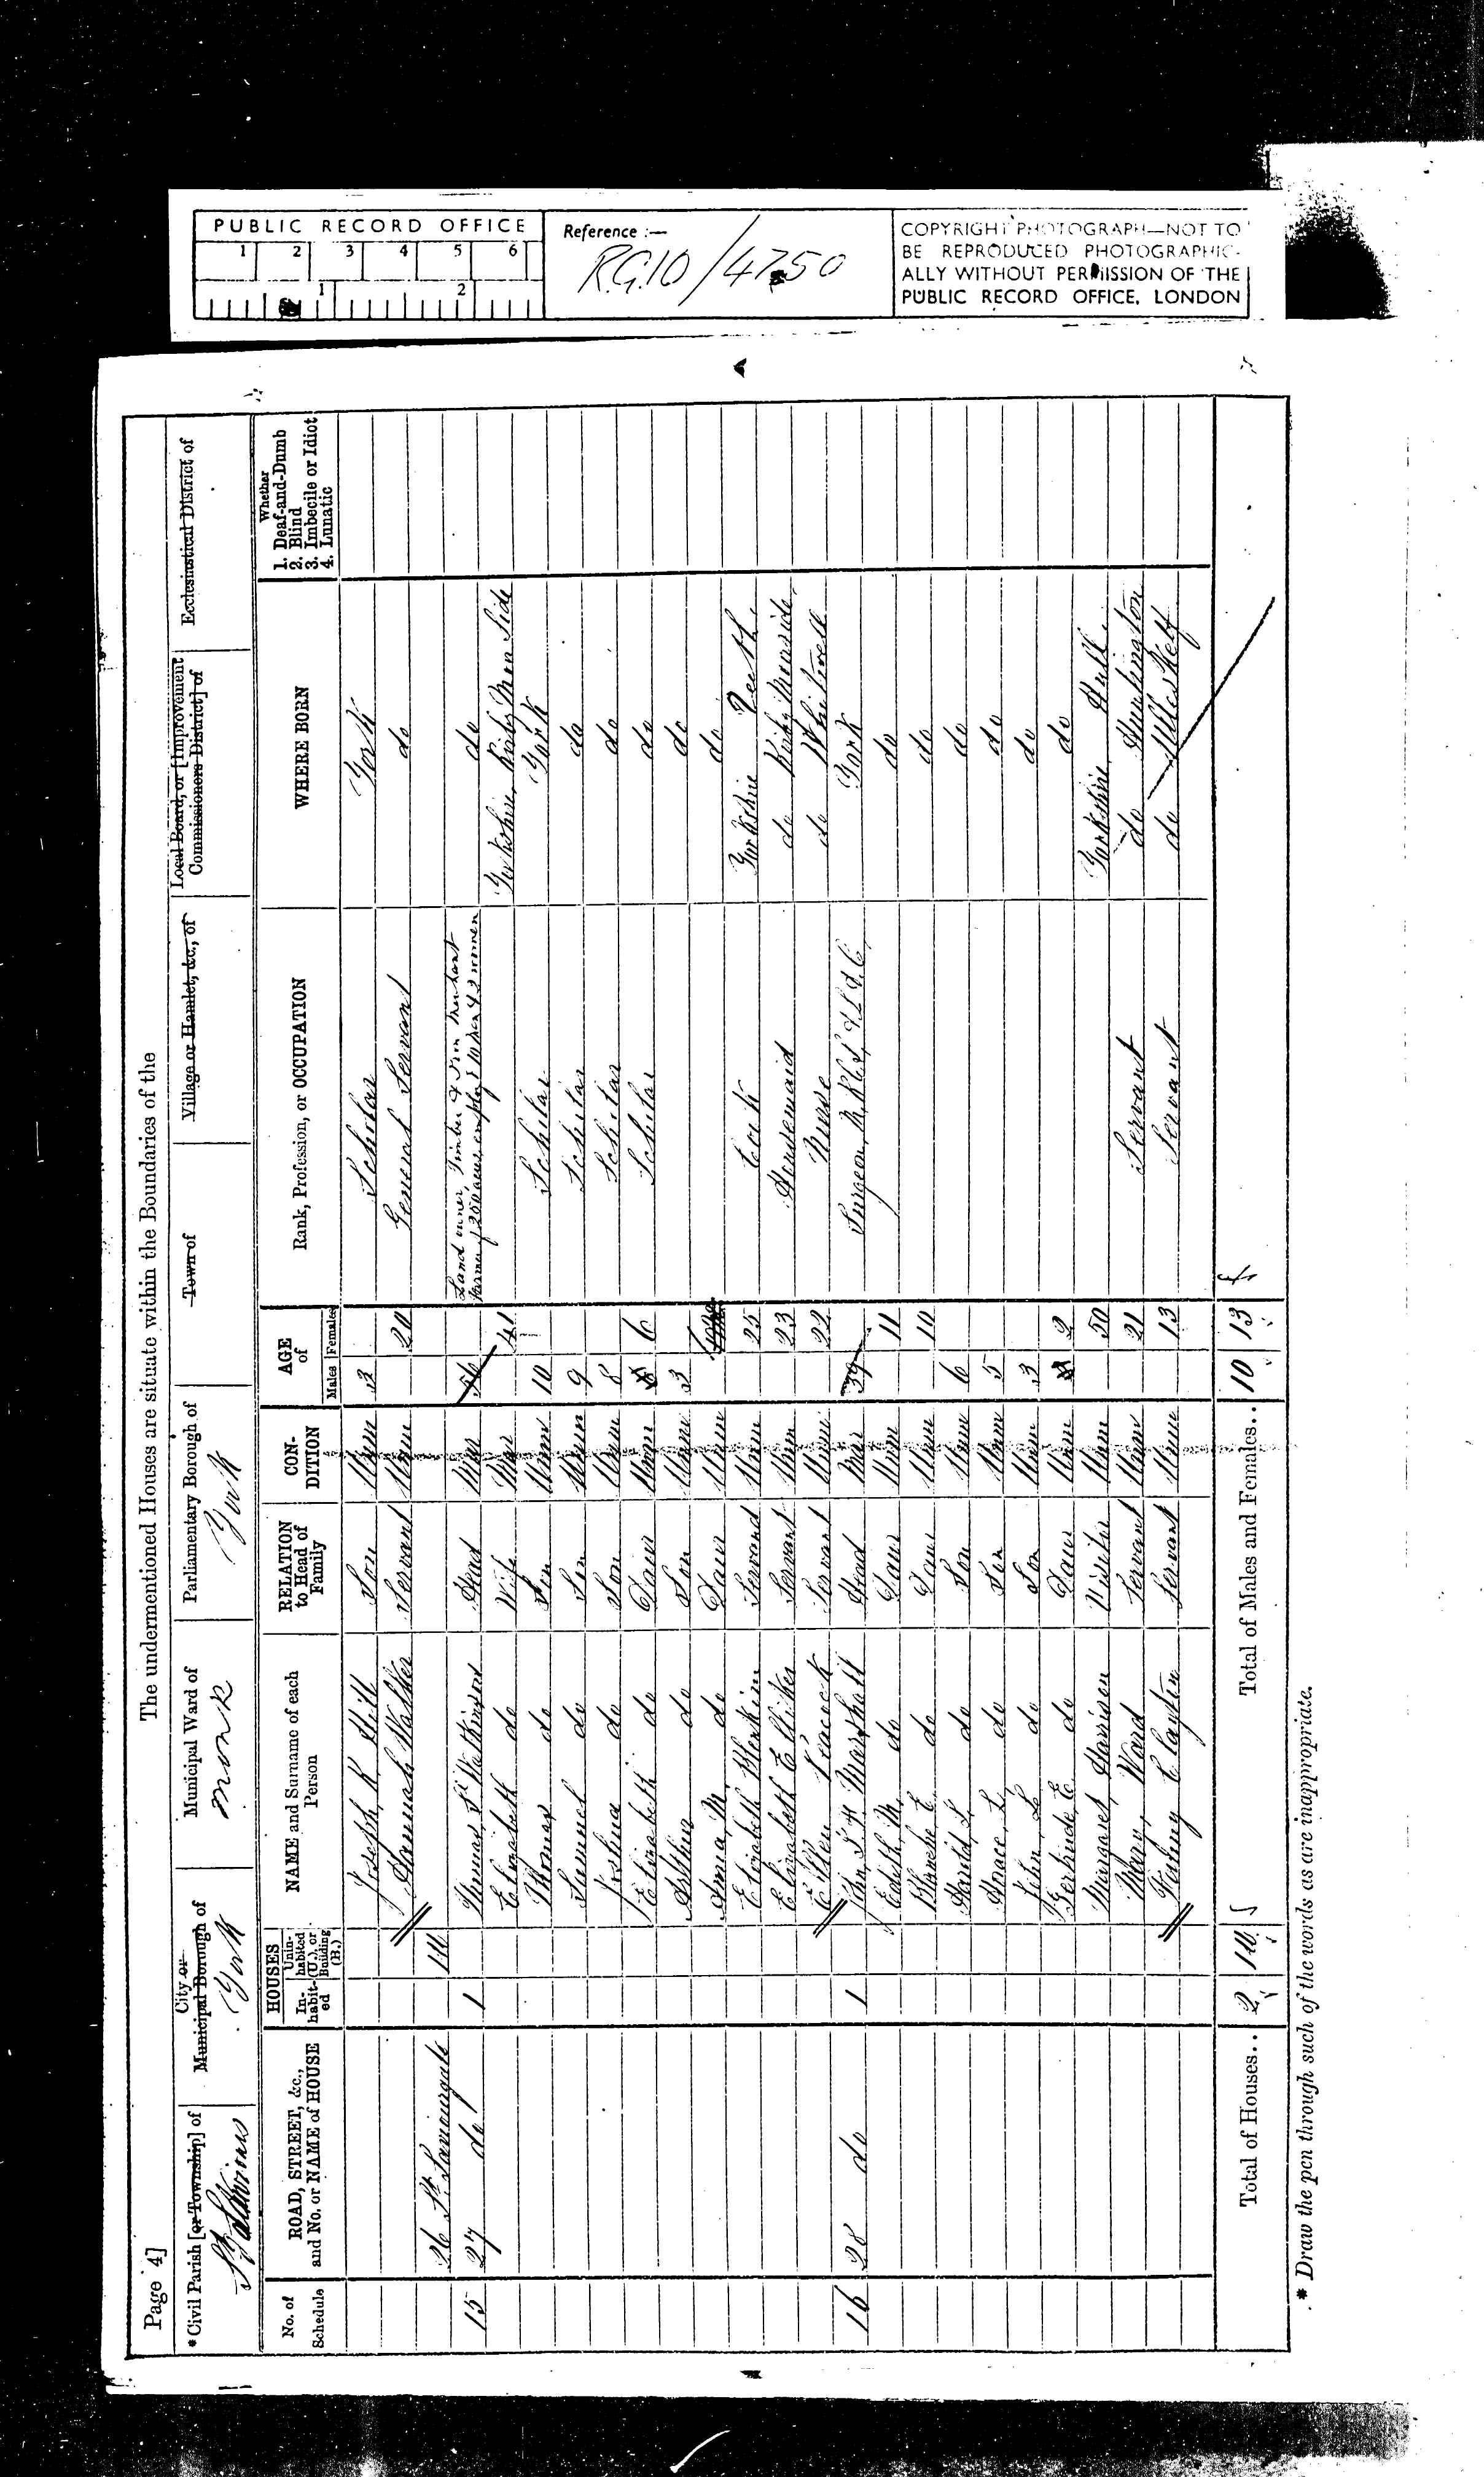 PUBLIC RECORD OFFICE
1 2 3 4 5 6
1 2
Reference :—
R.G.10/4750
COPYRIGHT PHOTOGRAPH—NOT TO
BE REPRODUCED PHOTOGRAPHIC-
ALLY WITHOUT PERMISSION OF THE
PUBLIC RECORD OFFICE, LONDON
Page 4]
The undermentioned Houses are situate within the Boundaries of the
* Civil Parish [or Township] of
City or Municipal Borough of
York
Municipal Ward of
Monk
Parliamentary Borough of
York
Town of
Village or Hamlet, &c., of
Local Board, or [Improvement Commissioners District] of
Ecclesiastical District of
No. of Schedule
ROAD, STREET, &c., and No. or NAME of HOUSE
HOUSES
In-habit-ed
Unin-habited (U.), or Building (B.)
NAME and Surname of each Person
RELATION to Head of Family
CON-DITION
AGE of
Males Females
Rank, Profession, or OCCUPATION
WHERE BORN
Whether
1. Deaf-and-Dumb
2. Blind
3. Imbecile or Idiot
4. Lunatic
Joseph K Hill Son Unm 3 Scholar York
Hannah Walker Servant Unm 20 General Servant do
26 St Saviourgate 1U
Land owner, Timber & Iron Merchant
15 27 do 1 Thomas Watkinson Head Mar 56 Farmer of 200 acres employs 10 men & 3 women do
Elizabeth do Wife Mar 41 Yorkshire, Kirby Moor Side
Thomas do Son Unm 10 Scholar York
Samuel do Son Unm 9 Scholar do
Joshua do Son Unm 8 Scholar do
Elizabeth do Daur Unm 6 Scholar do
Arthur do Son Unm 3 do
Annie M do Daur Unm do
Elizabeth Blenkin Servant Unm 25 Cook Yorkshire
Elizabeth Elliker Servant Unm 23 Housemaid do Kirby Moorside
Ellen Peacock Servant Unm 22 Nurse do Whitwell
16 28 do 1 John Marshall Head Mar 39 Surgeon, M.R.C.S. & L.S.A. York
Edith M. do Daur Unm 11 do
Blanche E. do Daur Unm 10 do
Harold S. do Son Unm 6 do
Horace L. do Son Unm 5 do
John do Son Unm 3 do
Gertrude E. do Daur Unm 2 do
Margaret Harrison Visitor Unm 50 Yorkshire Hull
Mary Ward Servant Unm 21 Servant do Huntington
Fanny Clayton Servant Unm 13 Servant do Ulleskelf
Total of Houses.. 2 1U
Total of Males and Females.. 10 13
* Draw the pen through such of the words as are inappropriate.